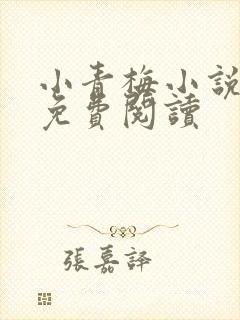 小青梅小說
免費閱讀
張嘉譯